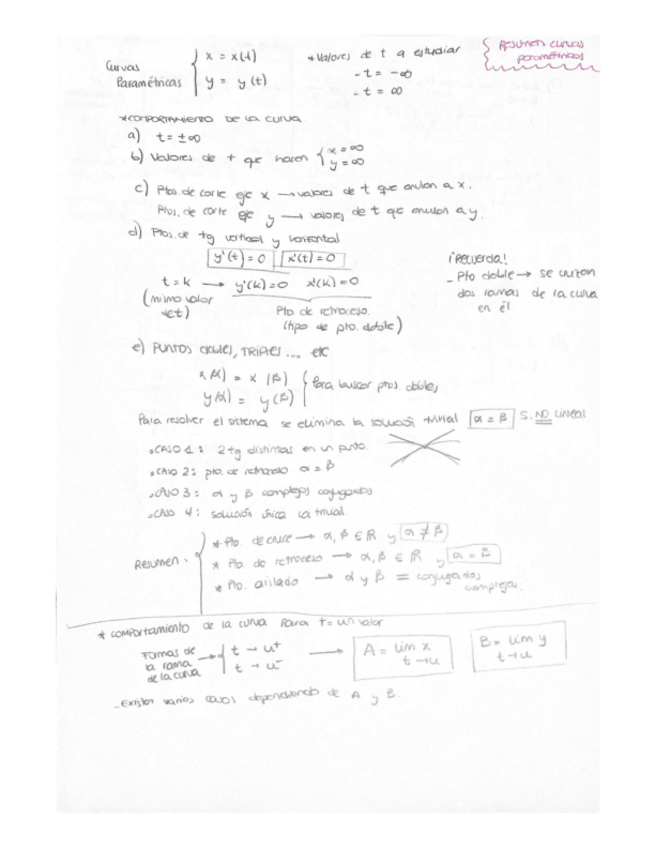 Resumen curvas
paramétricas
Curvas
Paramétricas { x = x(t)
y = y(t)
* Valores de t a estudiar
- t = -∞
- t = ∞
* COMPORTAMIENTO DE LA CURVA.
a) t = ±∞
b) Valores de t que hacen { x = ∞
y = ∞
c) Ptos. de corte eje x → valores de t que anulan a x.
Ptos. de corte eje y → valores de t que anulan a y.
d) Ptos. de tg vertical y horizontal
y'(t) = 0 x'(t) = 0
t = k → y'(k) = 0 x'(k) = 0
(mismo valor
de t)
Pto de retroceso.
(tipo de pto. doble)
¡Recuerda!
- Pto doble → se cruzan
dos ramas de la curva
en él
e) PUNTOS dobles, TRIPLES ... etc
x(α) = x(β)
y(α) = y(β) } Para buscar ptos. dobles
Para resolver el sistema se elimina la solución trivial α = β S. NO LINEAL
• CASO 1: 2 tg distintas en un punto.
• CASO 2: pto. de retroceso α = β
• CASO 3: α y β complejos conjugados
• CASO 4: solución única la trivial
Resumen - { * Pto. de cruce → α, β ∈ ℝ y α ≠ β
* Pto de retroceso → α, β ∈ ℝ y α = β
* Pto. aislado → α y β = conjugados
complejos.
* comportamiento de la curva para t = un valor
Formas de
la rama
de la curva → { t → u⁺
t → u⁻ → A = lim x
t→u
B = lim y
t→u
- Existen varios casos dependiendo de A y B.